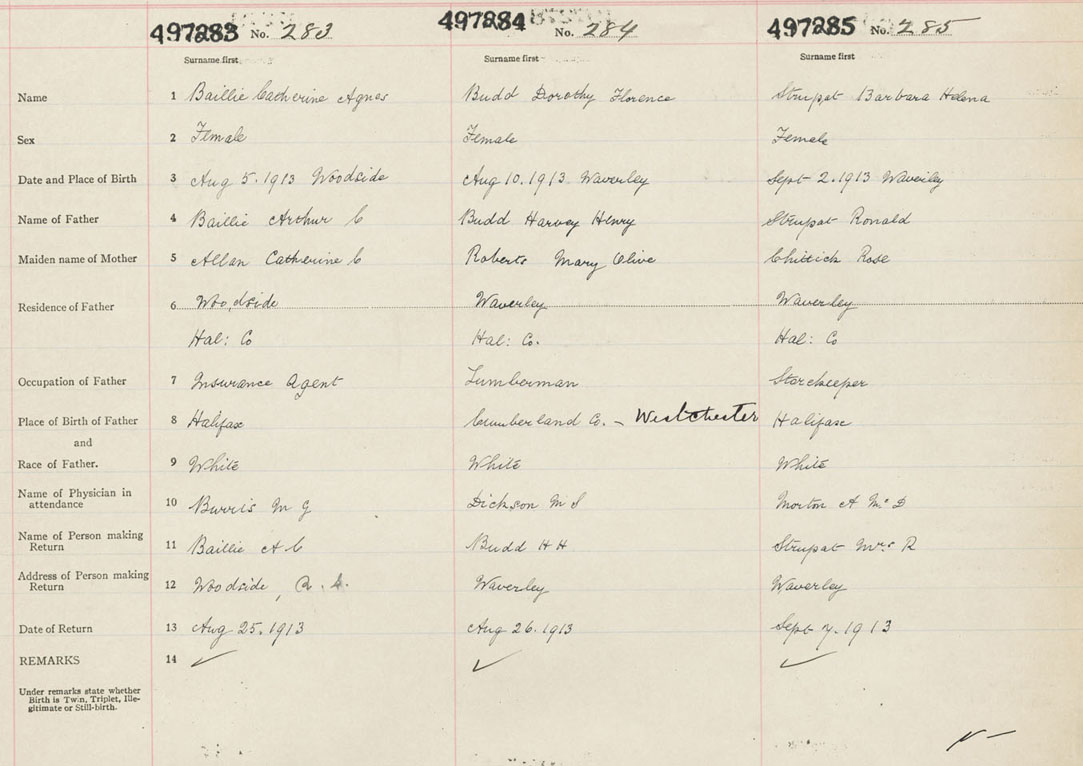 497283 No. 283 497284 No. 284 497285 No. 285
Surname first Surname first Surname first
Name 1 Baillie Catherine Agnes Budd Dorothy Florence Strupat Barbara Helena
Sex 2 Female Female Female
Date and Place of Birth 3 Aug 5. 1913 Woodside Aug 10. 1913. Waverley Sept 2. 1913 Waverley
Name of Father 4 Baillie Arthur C Budd Harvey Henry Strupat Ronald
Maiden name of Mother 5 Allan Catherine C Roberts Mary Olive Chittick Rose
Residence of Father 6 Woodside Waverley Waverley
Hal: Co Hal: Co. Hal: Co
Occupation of Father 7 Insurance Agent Lumberman Storekeeper
Place of Birth of Father 8 Halifax Cumberland Co. - Westchester Halifax
and
Race of Father. 9 White White White
Name of Physician in
attendance 10 Burris M G Dickson M S Morton A Mc D
Name of Person making
Return 11 Baillie A C Budd H H Strupat Mrs R
Address of Person making
Return 12 Woodside, Waverley Waverley
Date of Return 13 Aug 25. 1913 Aug 26. 1913 Sept 7. 1913
REMARKS 14
Under remarks state whether
Birth is Twin, Triplet, Ille-
gitimate or Still-birth.